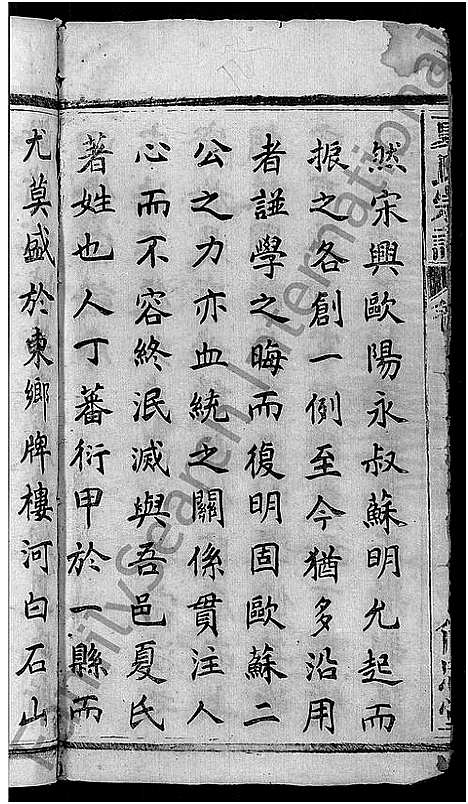 然宋興歐陽永叔蘇明允起而
振之各創一例至今猶多沿用
者諡學之晦而復明固歐蘇二
公之力亦血統之關係貫注人
心而不容終泯滅與吾邑夏氏
著姓也人丁蕃衍甲於一縣而
尤莫盛於東鄉牌樓河白石山
FamilySearch International